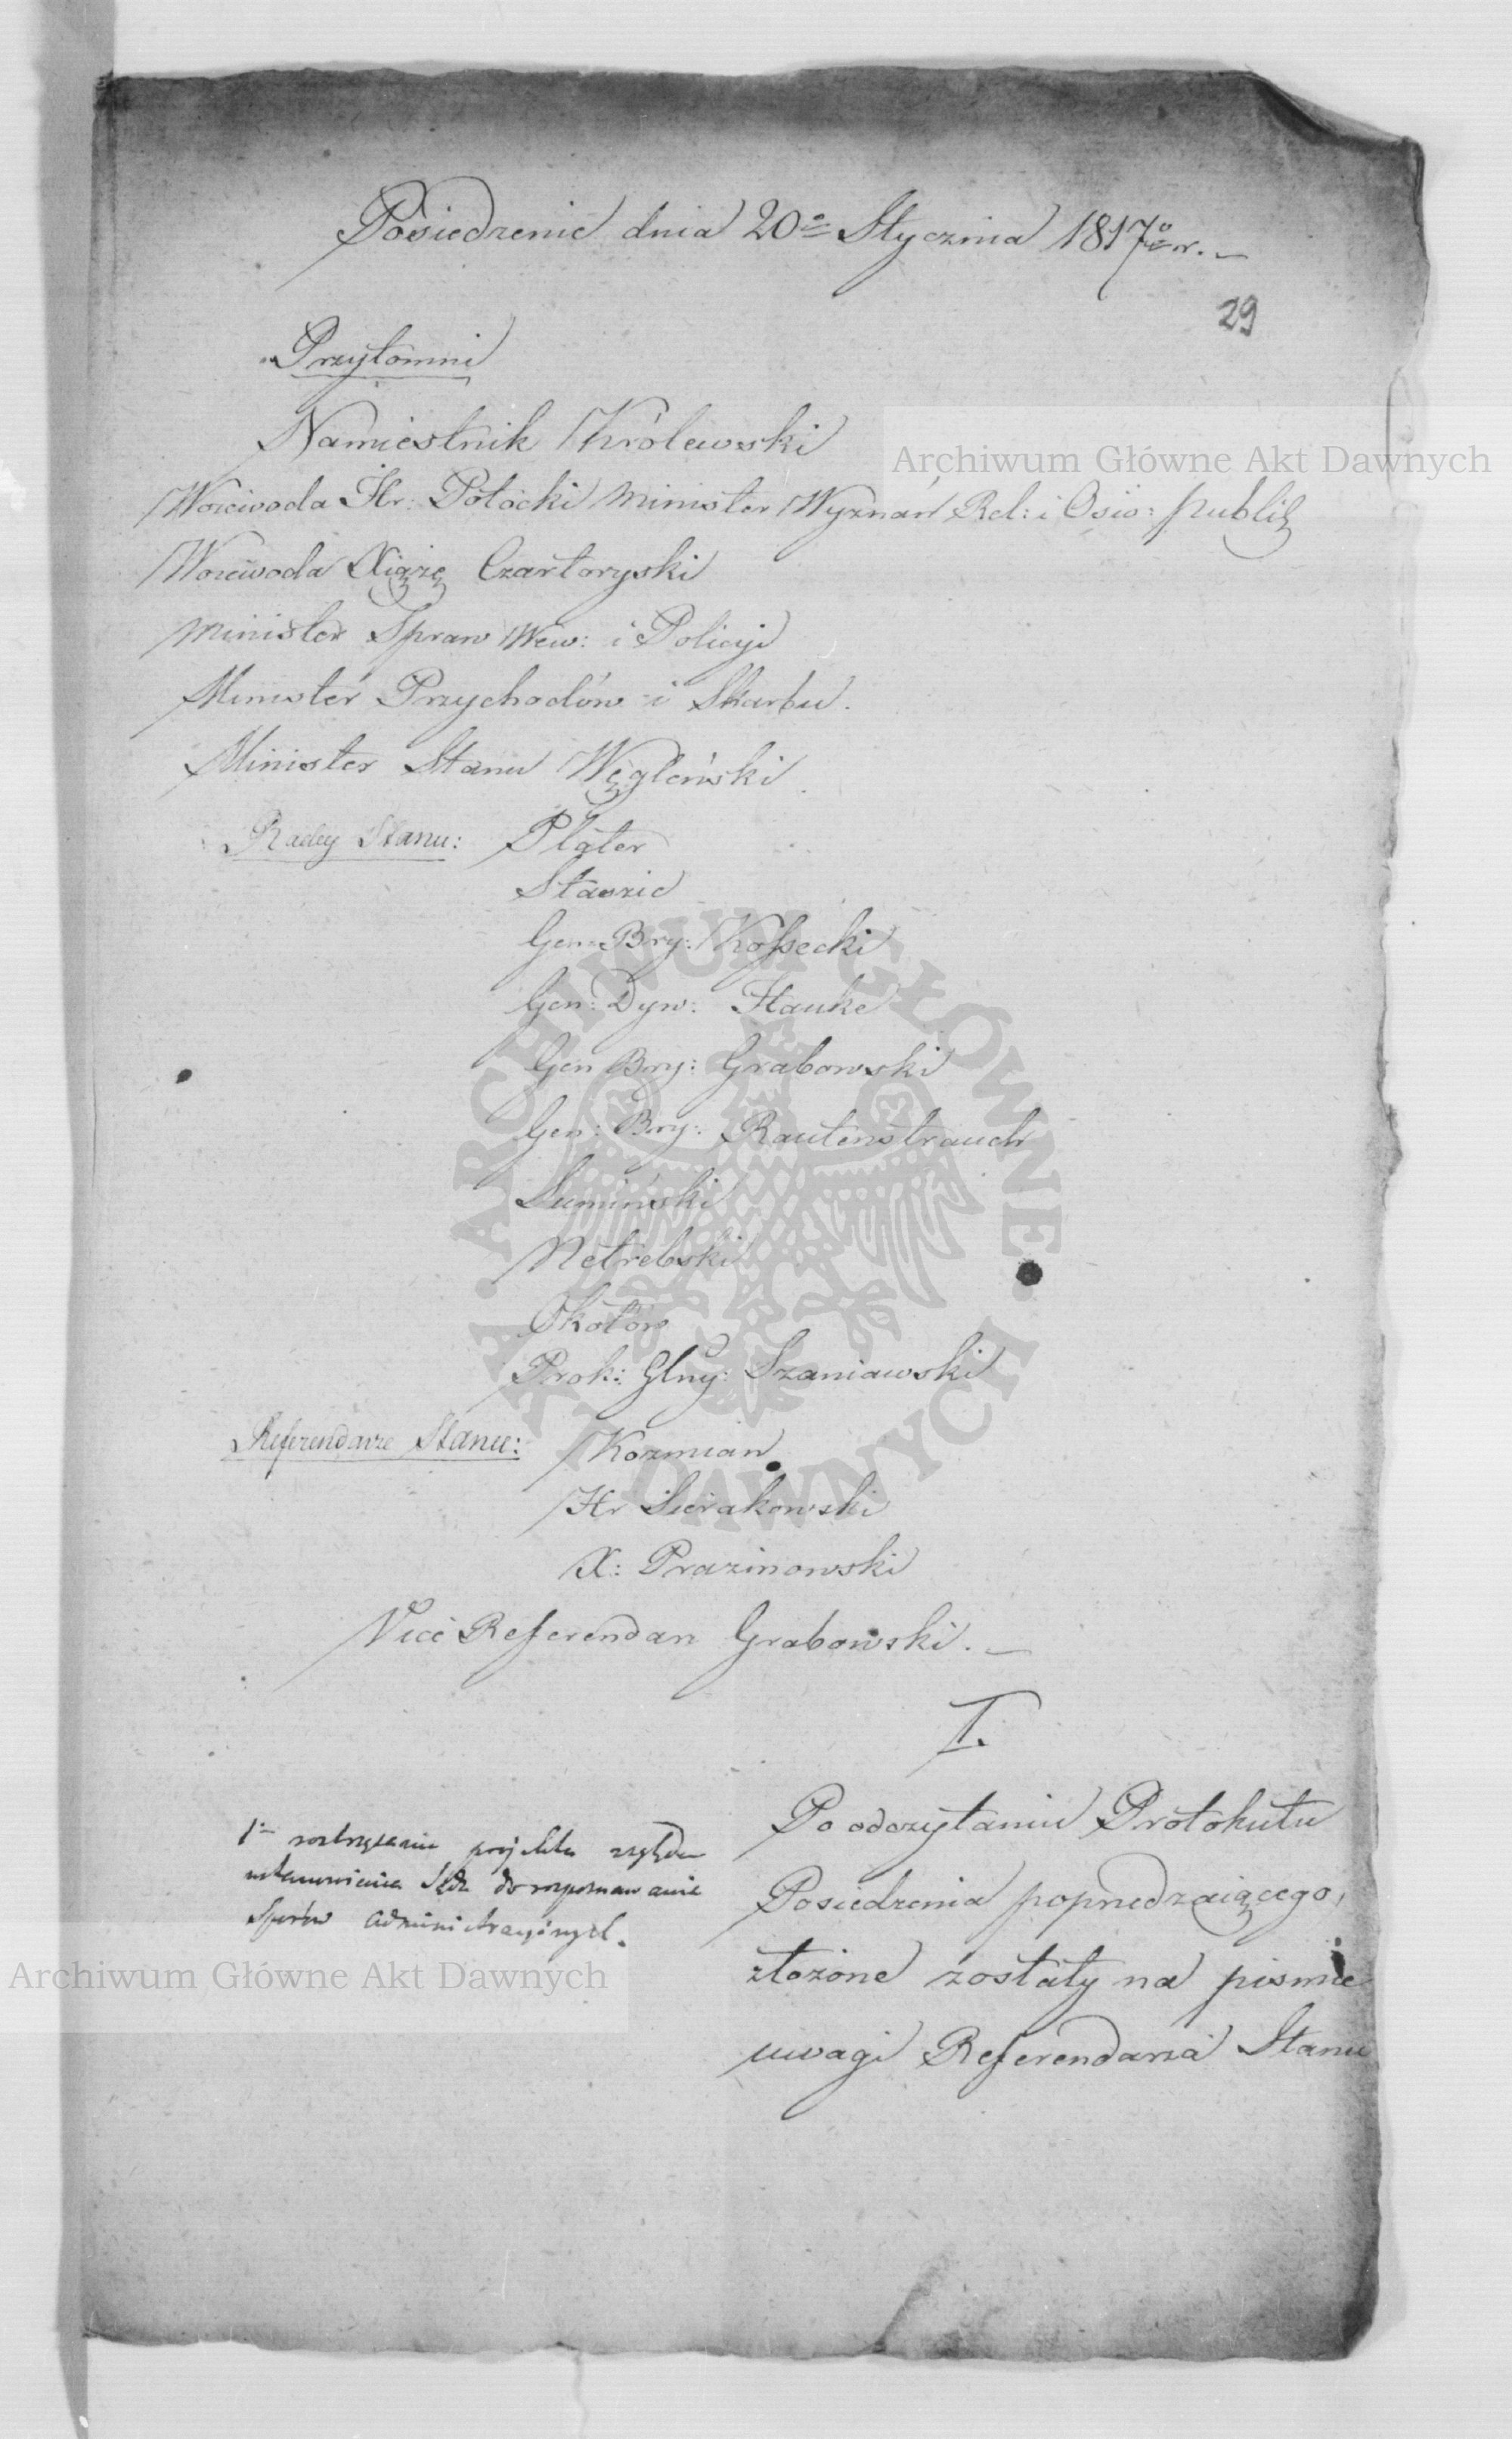 Posiedzenie dnia 20º Stycznia 1817º r. —
29
Przytomni
Namiestnik Królewski
Woiewoda Hr: Potocki Minister Wyznań Rel: i Oświ: Publi:
Woiewoda Xiążę Czartoryski
Minister Spraw Wew: i Policyi
Minister Przychodów i Skarbu.
Minister Stanu Węgleński
Radcy Stanu: Plater
Staszic
Gen: Bry: Kossecki
Gen: Dyw: Hauke
Gen Bry: Grabowski
Gen: Bry: Rautenstrauch
Lumiński
Netrebski
Okołów
Prok: Glny: Szaniawski
Referendarze Stanu: Kozmian
Hr Sierakowski
X: Prazmowski
Vice Referendarz Grabowski. —
I.
1º roztrząsanie projektu względem
ustanowienia Sądu do rozpoznawania
Sporów administracyinych.
Po odczytaniu Protokułu
Posiedzenia poprzedzaiącego,
złożone zostały na pismie
uwagi Referendarza Stanu
Archiwum Główne Akt Dawnych
Archiwum Główne Akt Dawnych
ARCHIWUM GŁÓWNE AKT DAWNYCH